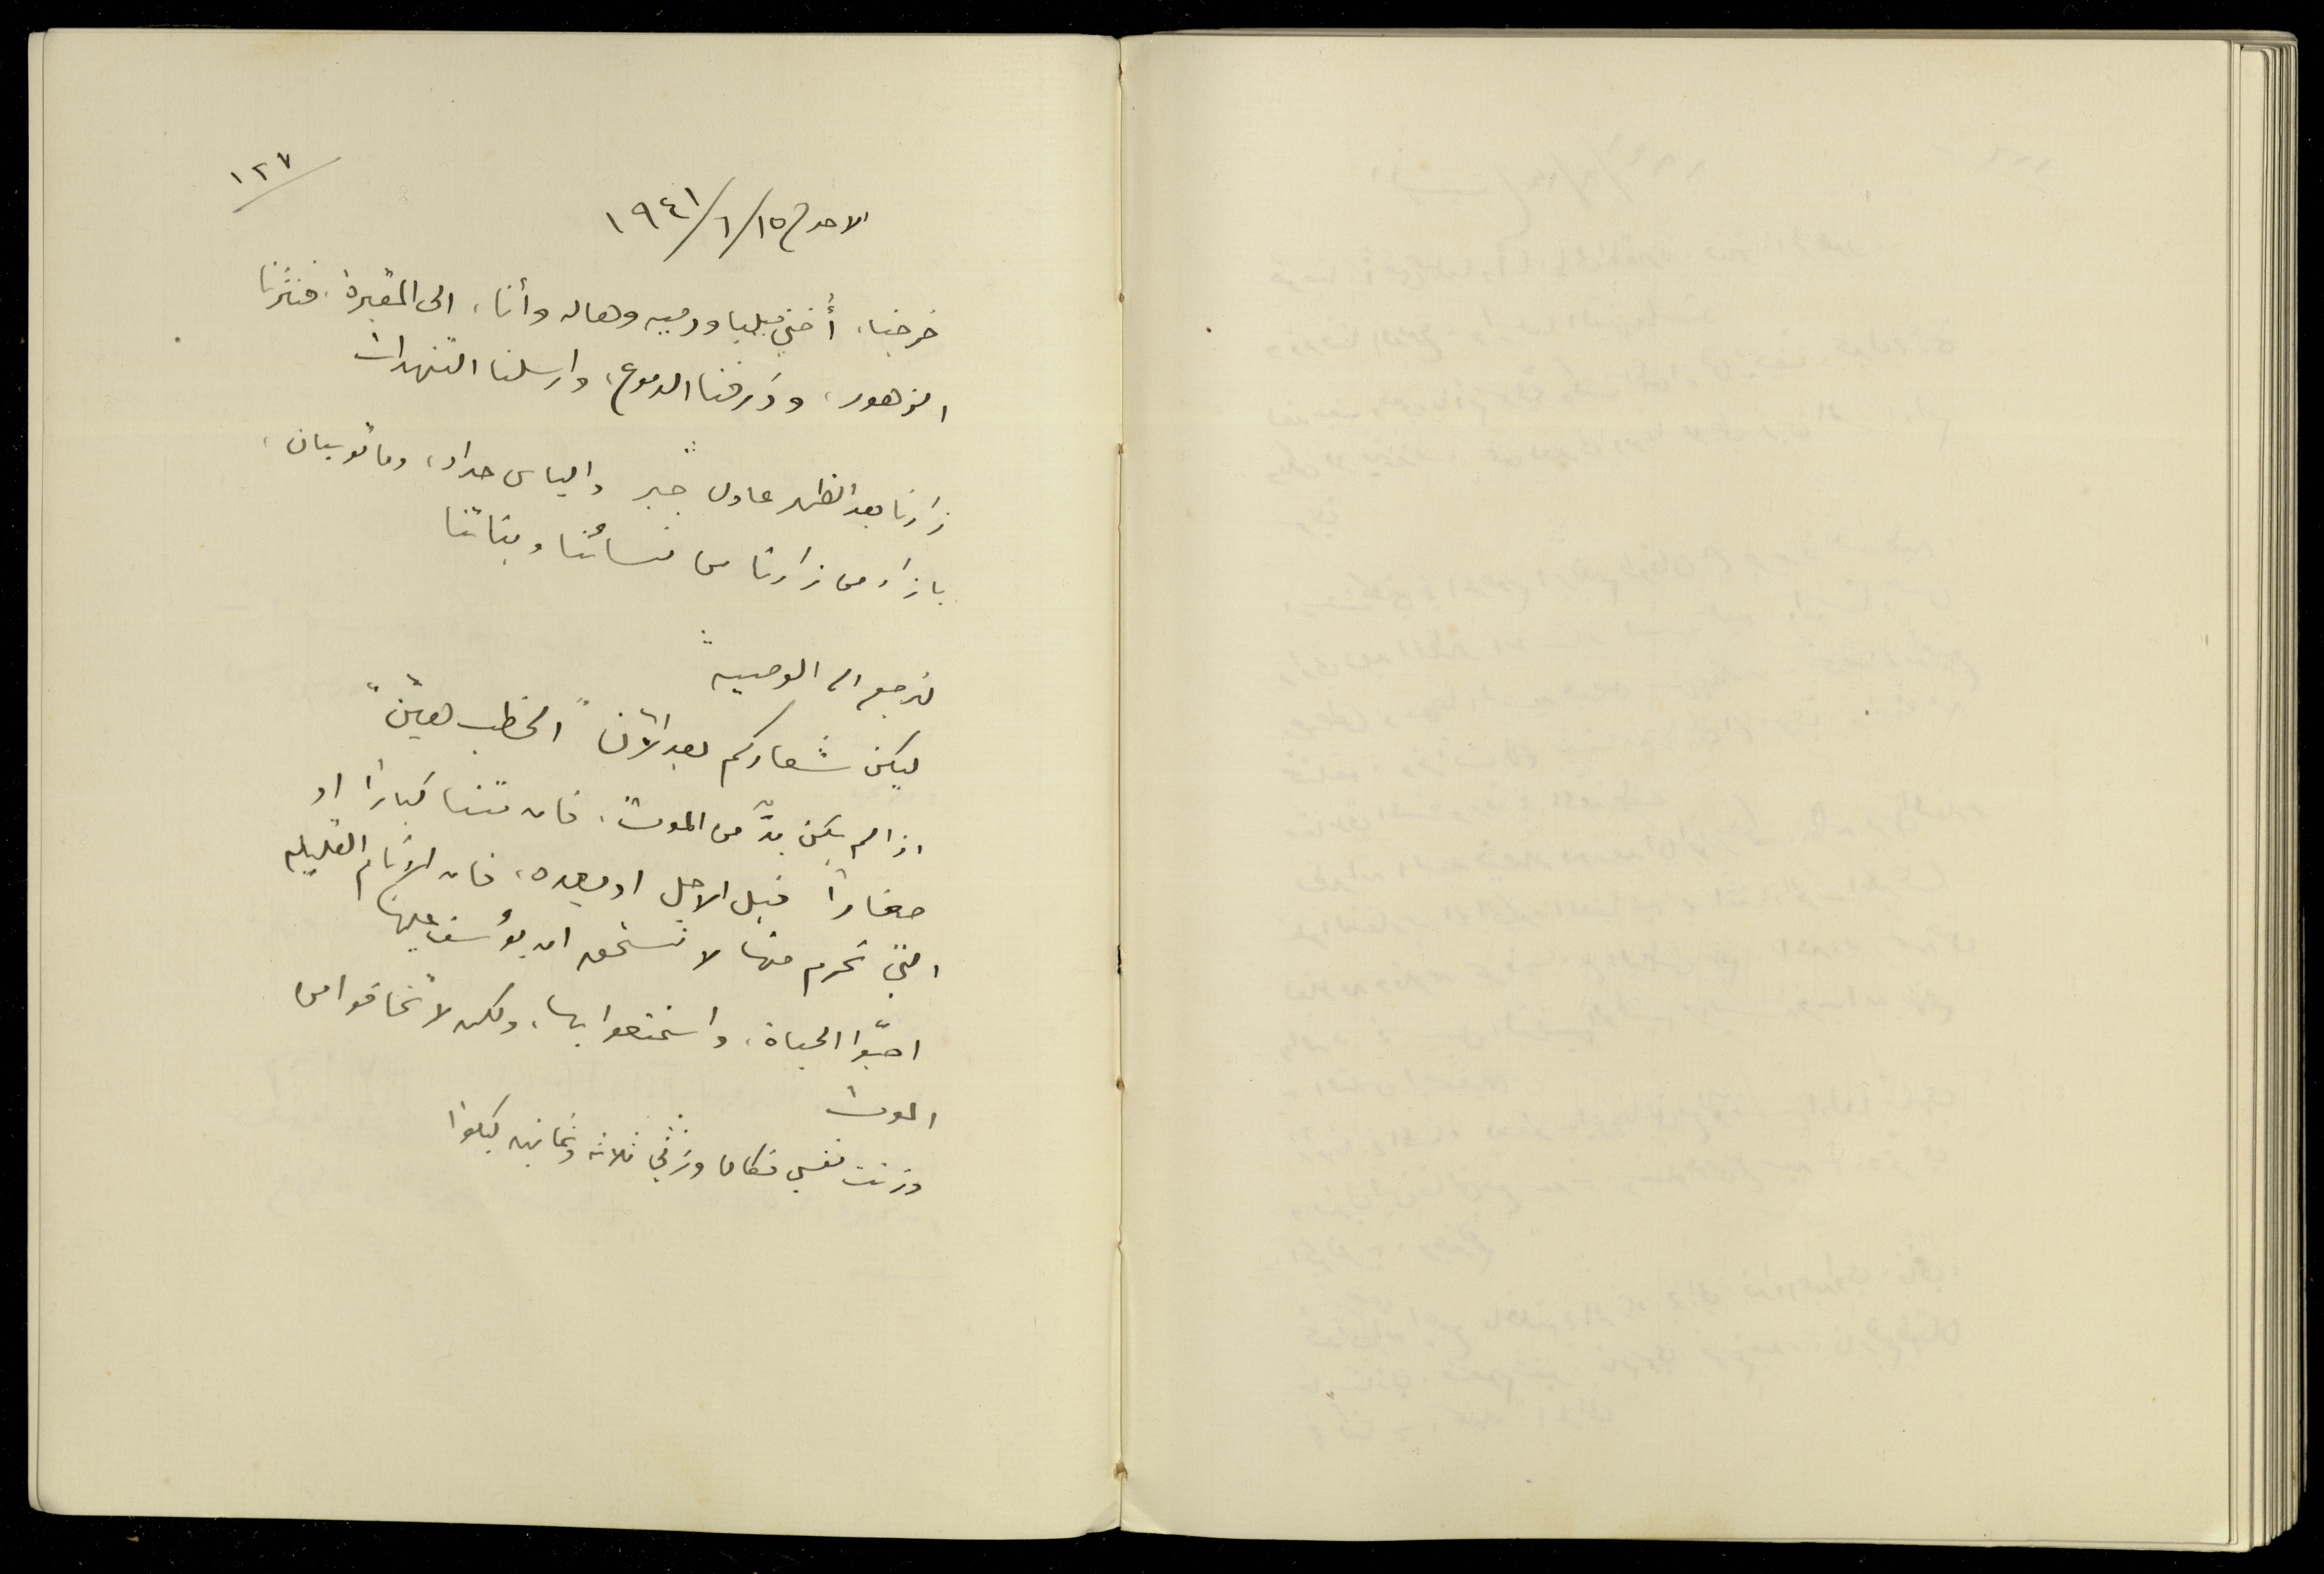 ١٢٧
الاحد ١٥/٦/١٩٤١
خرجنا، أختي ميليا ودميه وهاله وأنا، الى المقبرة، فنثرنا
الزهور، وذرفنا الدموع، وارسلنا التنهدات
زارنا بعد الظهر عادل جبر والياس حداد، وماتوسيان،
بازاء من زارتا من نسائنا وبناتنا
لنرجع الى الوصية
ليكن شعاركم بعد الآن "الخطب هيّن"
اذا لم يكن بدّ من الموت، فان متنا كباراً او
صغاراً قبل الاجل او بعده، فان الايّام القليله
التي نحرم منها لا تستحق ان يؤسف عليها
احبّوا الحياة، واستمتعوا بها، ولكن لا تخافوا من
الموت
وزنت نفسي فكان وزني ثلاثه وثمانين كيلوا